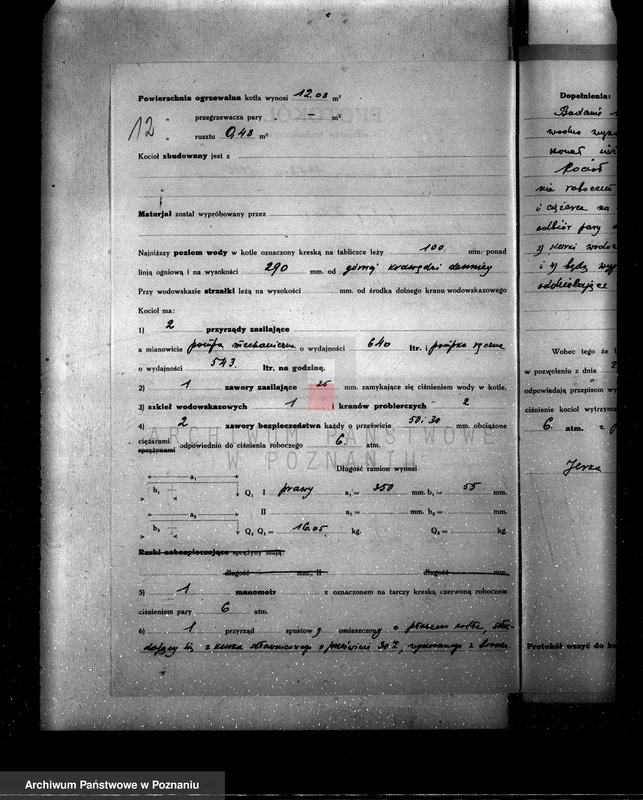 Powierzchnia ogrzewalna kotła wynosi 12.03 m²
12 " przegrzewacza pary — m²
" rusztu 0,48 m²
Kocioł zbudowany jest z
Materjał został wypróbowany przez
Najniższy poziom wody w kotle oznaczony kreską na tabliczce leży 100 mm. ponad
linją ogniową i na wysokości 290 mm. od górnej krawędzi
Przy wodowskazie strzałki leżą na wysokości mm. od środka dolnego kranu wodowskazowego
Kocioł ma:
1) 2 przyrządy zasilające
a mianowicie pompa mechaniczna o wydajności 640 ltr. i pompka ręczna
o wydajności 543. ltr. na godzinę.
2) 1 zawory zasilające 25 mm. zamykające się ciśnieniem wody w kotle.
3) szkieł wodowskazowych 1 i kranów probierczych 2
4) 2 zawory bezpieczeństwa każdy o prześwicie 50; 30 mm. obciążone
ciężarami
sprężynami odpowiednio do ciśnienia roboczego 6. atm.
ARCHIWUM PAŃSTWOWE
W POZNANIU
Długość ramion wynosi
a₁
b₁ Q₁ I prawy a₁ = 350 mm. b₁ = 55 mm.
a₂ II a₂ = mm. b₂ = mm.
b₂ Q₁ = 16.05 kg. Q₂ = kg.
Rurki zabezpieczające sprężyny mają:
długość mm., II długość mm.
5) 1 manometr z oznaczonem na tarczy kreską czerwoną roboczem
ciśnieniem pary 6 atm.
6) 1 przyrząd spustowy umieszczony w płaszczu kotła,
się z o prześwicie 30 wykonanego z
Dopełnienia:
Badanie
wodne
Kocioł
nie
i ciężarca na
odbiór pary
i 4) będą
Wobec tego że
w pozwoleniu z dnia 2
odpowiadają przepisom wy
ciśnienie kocioł wytrzyma
6. atm. z
Protokół ważny do ks
Archiwum Państwowe w Poznaniu